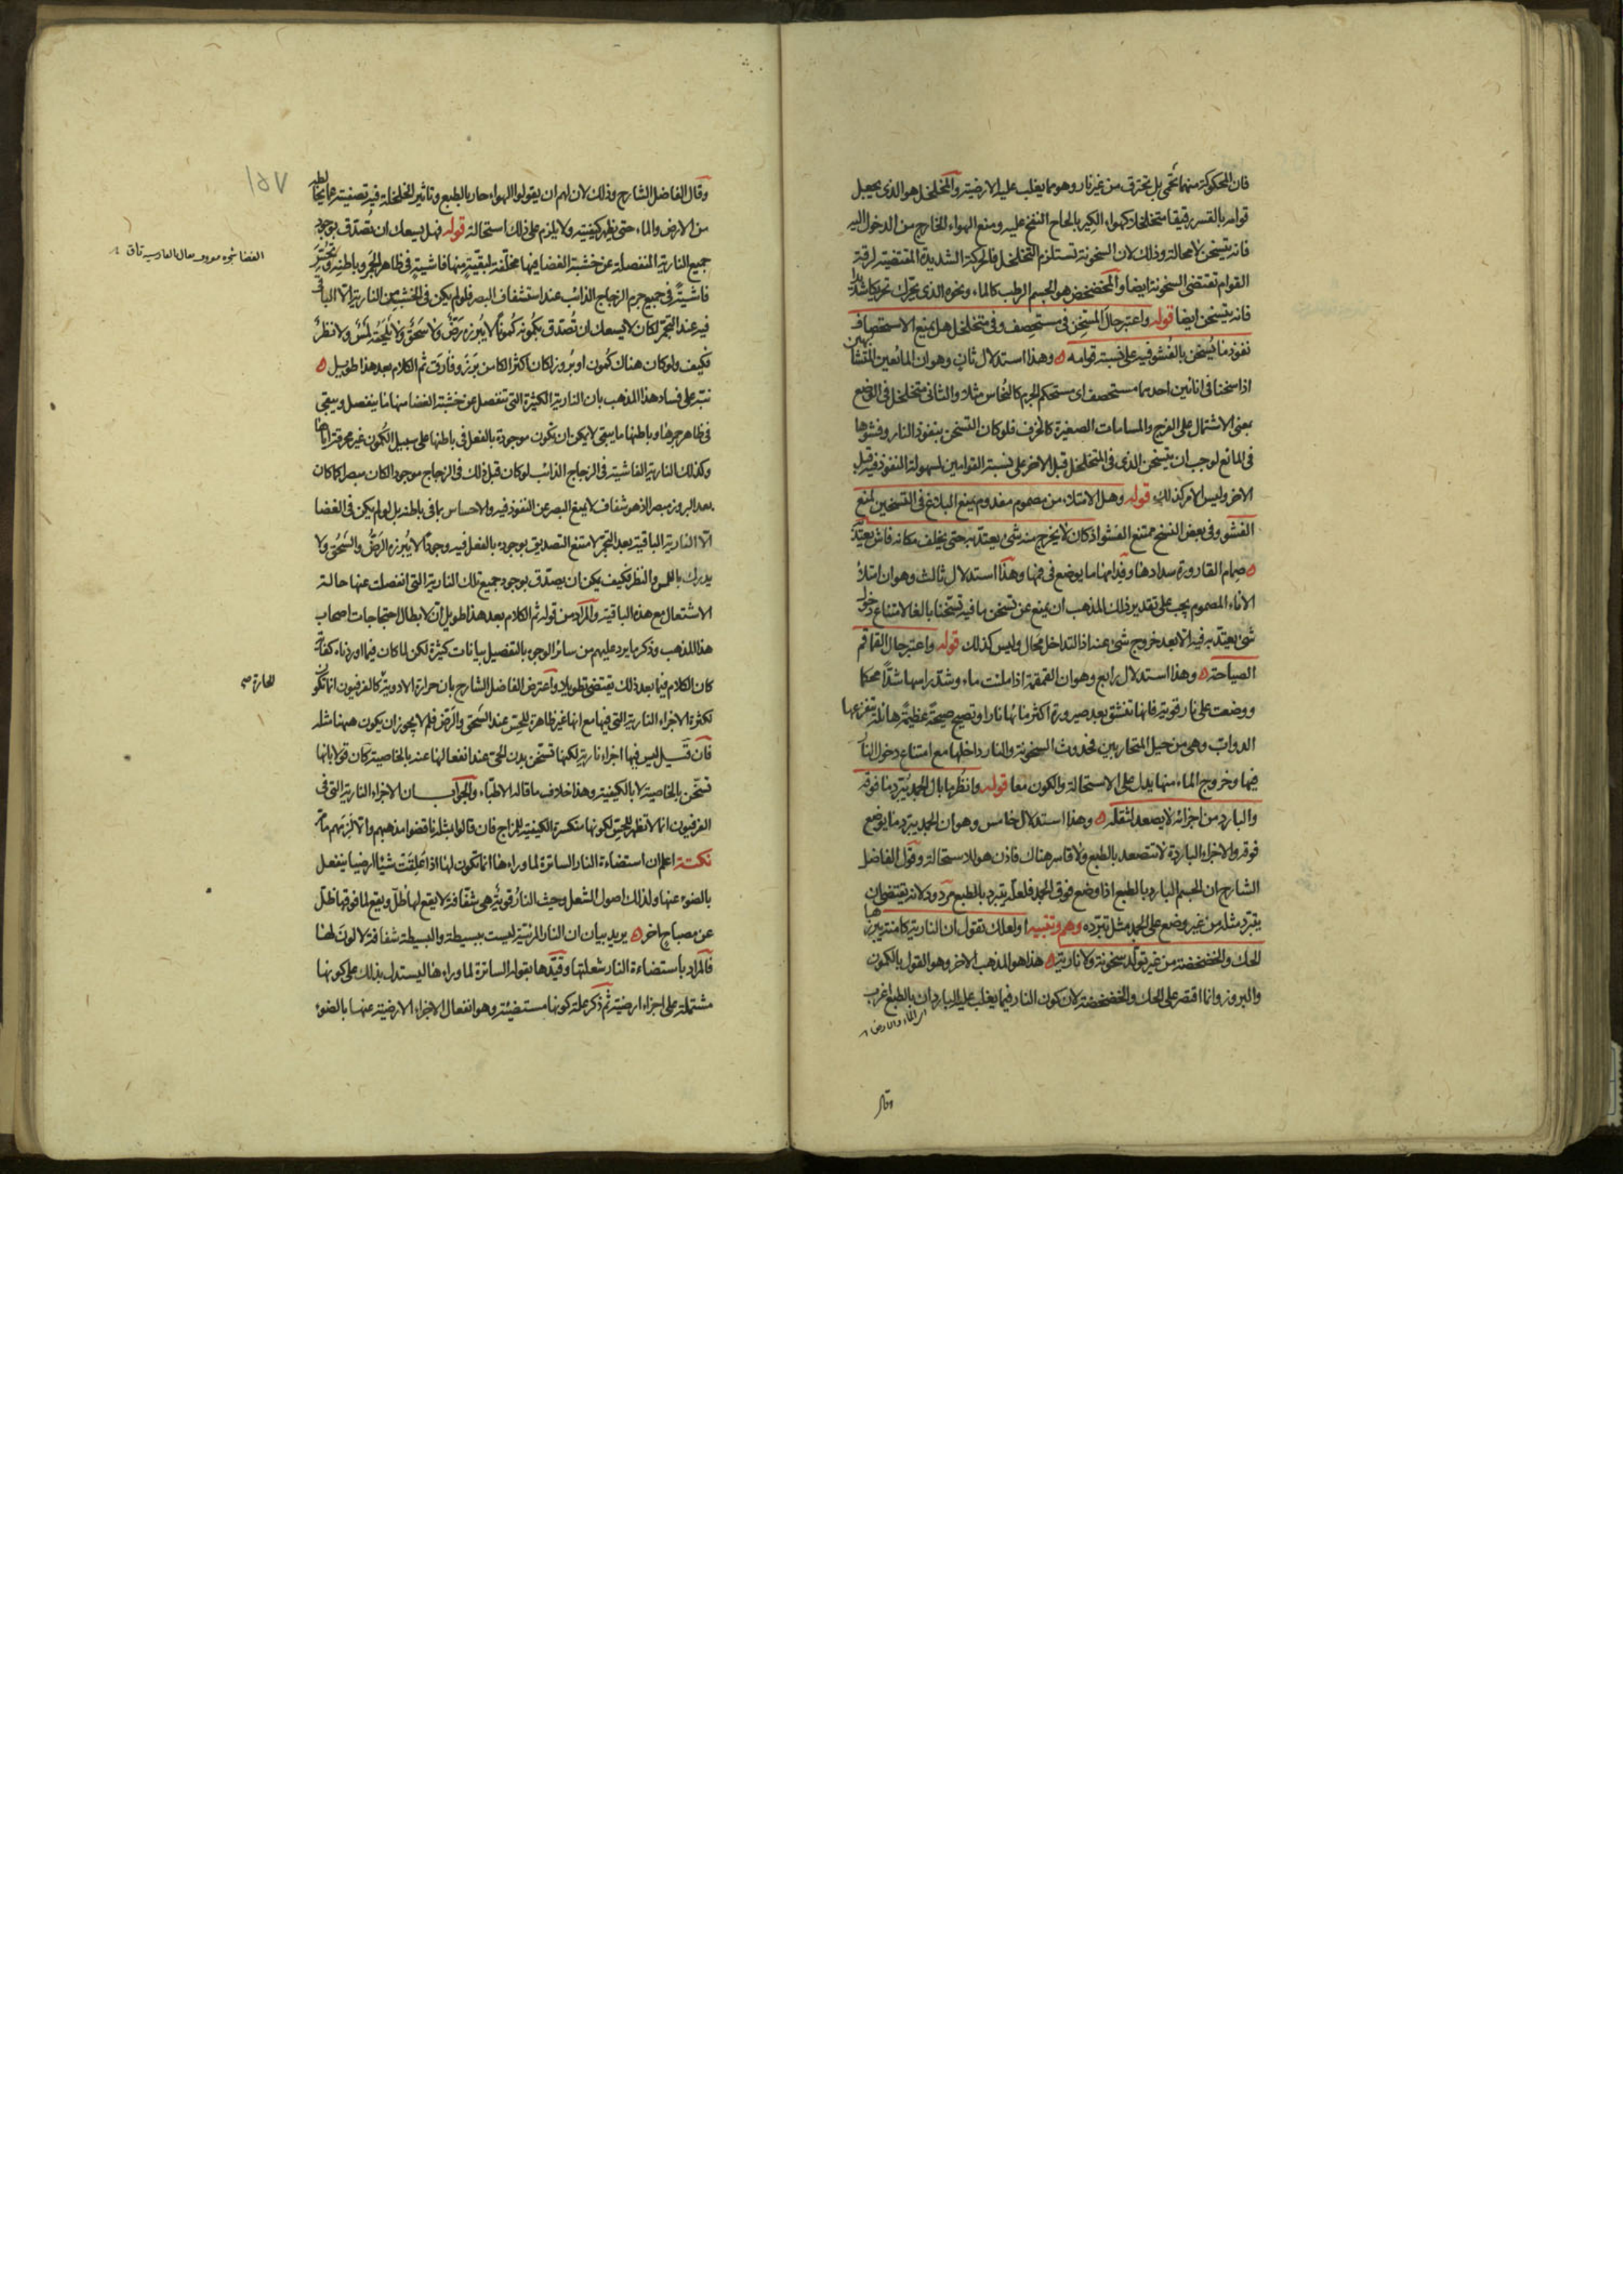 فان المحكوكة منهما تحمى بل تحترق من غير نار وهو مما يغلب عليه الارضية والمخلخل هو الذى يجعل
قوامه بالقسر رقيقا متخلخلا كهواء الكير بالحاح النفخ عليه ومنع الهواء الخارج من الدخول اليه
فانه يتسخن لا محالة وذلك لان السخونة تستلزم التخلخل فالحركة الشديدة المقتضية لرقة
القوام تقتضى السخونة ايضا والمخضخض هو الجسم الرطب كالماء ونحوه الذى يحرك تحريكا شديدا
فانه يتسخن ايضا قوله واعتبر حال المتسخن فى مستحصف وفى متخلخل هل يمنع الاستحصاف
نفوذ ما يسخن بالفشو فيه على نسبة قوامه ه وهذا استدلال ثان وهو ان المائعين المتشابهين
اذا سخنا فى انائين احدهما مستحصف اى مستحكم الجرم كالنحاس مثلا والثانى متخلخل فى الوضع
بمعنى الاشتمال على الفرج والمسامات الصغيرة كالخزف فلو كان التسخن بنفوذ النار وفشوها
فى المائع لوجب ان يتسخن الذى فى المتخلخل قبل الاخر على نسبة القوامين لسهولة النفوذ فيه قبل
الاخر وليس الامر كذلك قوله وهل الامتلاء من مصموم مفدوم يمنع البلاغ فى التسخين لمنع
الفشو وفى بعض النسخ ممتنع الفشو اذ كان لا يخرج منه شئ يعتد به حتى يخلف مكانه فاش يعتد به
ه صمام القارورة سدادها وفدامها ما يوضع فى فمها وهذا استدلال ثالث وهو ان امتلاء
الاناء المصموم يجب على تقدير ذلك المذهب ان يمنع عن تسخن ما فيه تسخنا بالغا لامتناع دخول
شئ يعتد به فيه الا بعد خروج شئ عنه اذ التداخل محال وليس كذلك قوله واعتبر حال القماقم
الصياحة ه وهذا استدلال رابع وهو ان القمقمة اذا ملئت ماء وشد راسها شدا محكما
ووضعت على نار قوية فانها تنشق بعد صيرورة اكثر مائها نارا وتصيح صيحة عظيمة هائلة تنفر عنها
الدواب وهى من حيل المتحاربين فحدوث السخونة والنار داخلها مع امتناع دخول النار
فيها وخروج الماء منها يدل على الاستحالة والكون معا قوله وانظر ما بال الجمد يبرد ما فوقه
والبارد من اجزائه لا يصعد لثقله ه وهذا استدلال خامس وهو ان الجمد يبرد ما يوضع
فوقه والاجزاء الباردة لا تتصعد بالطبع ولا قاسر هناك فاذن هو للاستحالة وقول الفاضل
الشارح ان الجسم البارد بالطبع اذا وضع فوق الجمد فلعله يتبرد بالطبع مردود لانه يقتضى ان
يتبرد مثله من غير وضع على الجمد مثل تبرده وهم وتنبيه او لعلك تقول ان النارية كامنة يبرزها
الحك والخضخضة من غير تولد سخونة ولا نارية ه هذا هو المذهب الاخر وهو القول بالكمون
والبروز وانما اقتصر على الحك والخضخضة لان كون النار فيما يغلب عليه الباردان بالطبع اغرب
اى الماء والارض
وقال
١٥٧
وقال الفاضل الشارح وذلك لان لهم ان يقولوا الهواء حار بالطبع وتاثير الخلخلة فيه تصفيته عما يخالطه
من الارض والماء حتى يظهر كيفيته ولا يلزم على ذلك استحالة قوله فهل يسعك ان تصدق بوجود
جميع النارية المنفصلة عن خشبة الغضا فيها مخلفة لبقية منها فاشية فى ظاهر الجمر وباطنه وتحس
فاشية فى جميع جرم الزجاج الذائب عند استشفاف البصر فلو لم يكن فى الخشب من النارية الا الباقى
فيه عند التجمر لكان لا يسعك ان تصدق بكمونه كمونا لا يبرزه رض ولا سحق ولا يلحقه لمس ولا نظر
فكيف ولو كان هناك كمون او بروز لكان اكثر الكامن برز وفارق ثم الكلام بعد هذا طويل ه
نبه على فساد هذا المذهب بان النارية الكثيرة التى تنفصل عن خشبة الغضا منها ما ينفصل ويبقى
فى ظاهر جمرها وباطنها ما يبقى لا يمكن ان يكون موجودة بالفعل فى باطنها على سبيل الكمون غير محرقة اياها
وكذلك النارية الفاشية فى الزجاج الذائب لو كان قبل ذلك فى الزجاج موجودا لكان مبصرا كما كان
بعد البروز مبصرا اذ هو شفاف لا يمنع البصر عن النفوذ فيه والاحساس بما فى باطنه بل لو لم يكن فى الغضا
الا النارية الباقية بعد التجمر لامتنع التصديق بوجوده بالفعل فيه وجودا لا يبرزه الرض والسحق ولا
يدرك باللمس والنظر فكيف يمكن ان يصدق بوجود جميع تلك النارية التى انفصلت عنها حالة
الاشتعال مع هذه الباقية والمراد من قوله ثم الكلام بعد هذا طويل ان لابطال احتجاجات اصحاب
هذا المذهب وذكر ما يرد عليهم من سائر الوجوه بالتفصيل بيانات كثيرة لكن لما كان فيما اوردناه كفاية
كان الكلام فيما بعد ذلك يقتضى تطويلا واعترض الفاضل الشارح بان حرارة الادوية كالفرفيون انما تكون
لكثرة الاجزاء النارية التى فيها مع انها غير ظاهرة للحس عند السحق والرض فلم لا يجوز ان يكون ههنا مثله
فان قيل ليس فيها اجزاء نارية لكنها تسخن بدن الحى عند انفعالها عنه بالخاصية كان قولا بانها
تسخن بالخاصية لا بالكيفية وهذا خلاف ما قاله الاطباء والجواب ان الاجزاء النارية التى فى
الفرفيون انما لا تظهر للحس لكونها منكسرة الكيفية للمزاج فان قالوا بمثله ناقضوا مذهبهم والا لزمهم ما مر
نكتة اعلم ان استضاءة النار الساترة لما وراءها انما تكون لها اذا علقت شيئا ارضيا ينفعل
بالضوء عنها ولذلك اصول الشعل وحيث النار قوية هى شفافة لا يقع لها ظل ويقع لما فوقها ظل
عن مصباح اخر ه يريد بيان ان النار المرئية ليست ببسيطة والبسيطة شفافة لا لون لها
فالمراد باستضاءة النار شعلتها وقيدها بقوله الساترة لما وراءها ليستدل بذلك على كونها
مشتملة على اجزاء ارضية ثم ذكر علة كونها مستضيئة وهو انفعال الاجزاء الارضية عنها بالضوء
الحارة صح